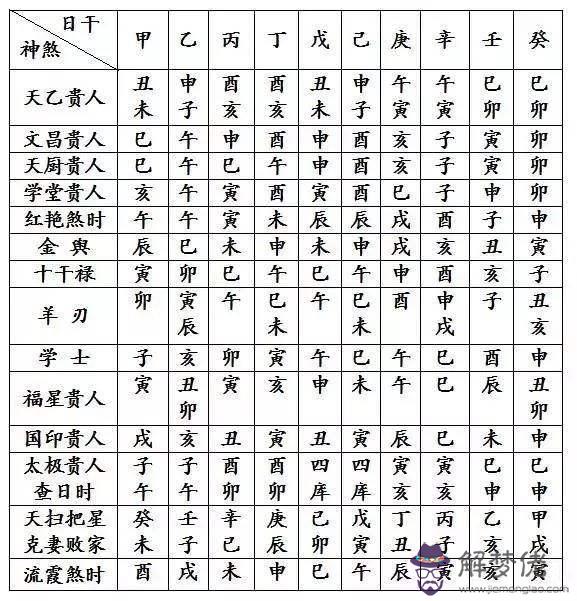 日干
神煞 甲 乙 丙 丁 戊 己 庚 辛 壬 癸
天乙贵人 丑 申 酉 酉 丑 申 午 午 巳 巳
未 子 亥 亥 未 子 寅 寅 卯 卯
文昌贵人 巳 午 申 酉 申 酉 亥 子 寅 卯
天厨贵人 巳 午 巳 午 申 酉 亥 子 寅 卯
学堂贵人 亥 午 寅 酉 寅 酉 巳 子 申 卯
红艳煞时 午 午 寅 未 辰 辰 戌 酉 子 申
金舆 辰 巳 未 申 未 申 戌 亥 丑 寅
十干禄 寅 卯 巳 午 巳 午 申 酉 亥 子
羊刃 卯 寅 午 巳 午 巳 酉 申 子 丑
辰 未 未 戌 亥
学士 子 亥 卯 寅 午 巳 午 巳 酉 申
福星贵人 寅 丑 寅 亥 申 未 午 巳 辰 丑
卯 卯
国印贵人 戌 亥 丑 寅 丑 寅 辰 巳 未 申
太极贵人 子 子 酉 酉 四 四 寅 寅 巳 巳
查日时 午 午 卯 卯 库 库 亥 亥 申 申
天扫把星 癸 壬 辛 庚 己 戊 丁 丙 乙 甲
克妻败家 未 子 巳 辰 卯 寅 丑 子 亥 戌
流霞煞时 酉 戌 未 申 巳 午 辰 寅 亥 寅
解梦佬
www.jiemenglao.com